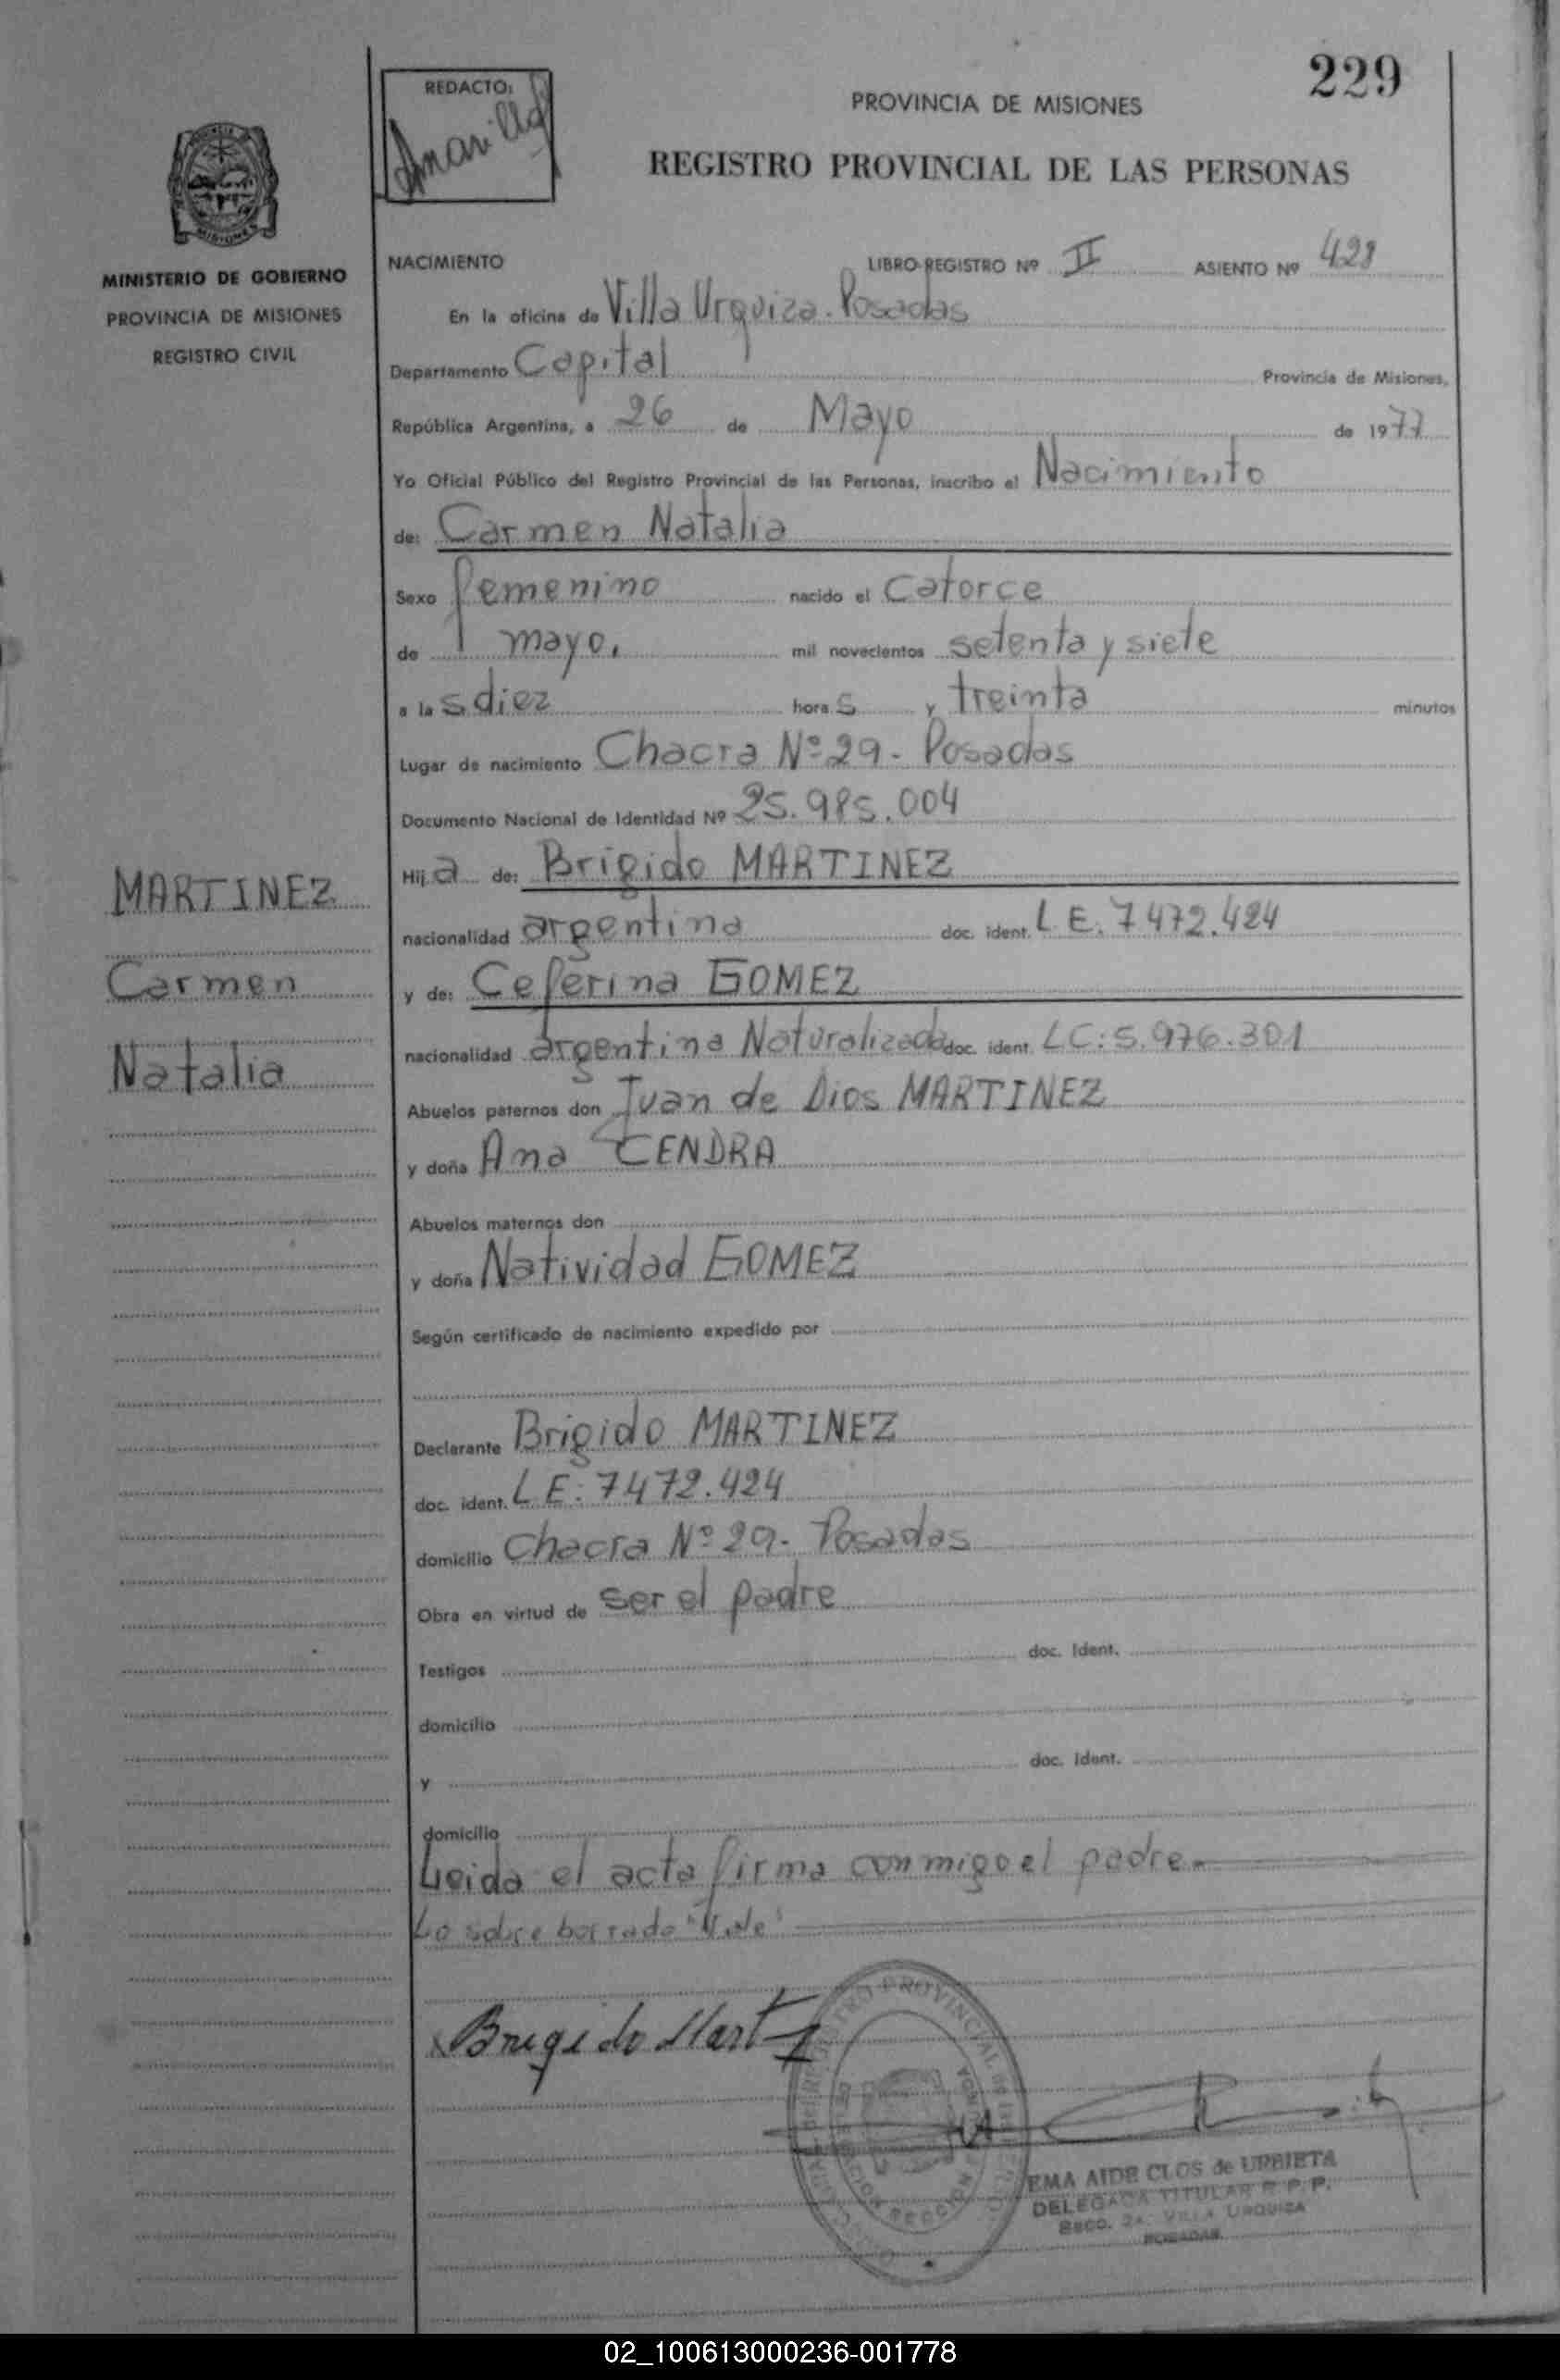 229
REDACTO:
PROVINCIA DE MISIONES
REGISTRO PROVINCIAL DE LAS PERSONAS
MINISTERIO DE GOBIERNO
PROVINCIA DE MISIONES
REGISTRO CIVIL
NACIMIENTO LIBRO-REGISTRO Nº II ASIENTO Nº 428
En la oficina de Villa Urquiza. Posadas
Departamento Capital Provincia de Misiones,
República Argentina, a 26 de Mayo de 1977
Yo Oficial Público del Registro Provincial de las Personas, inscribo el Nacimiento
de: Carmen Natalia
Sexo femenino nacido el Catorce
de mayo, mil novecientos setenta y siete
a las diez horas y treinta minutos
Lugar de nacimiento Chacra Nº 29 - Posadas
Documento Nacional de Identidad Nº 25.985.004
Hija de: Brigido MARTINEZ
MARTINEZ
nacionalidad argentina doc. ident. L E. 7472.424
Carmen
y de: Ceferina GOMEZ
nacionalidad argentina Naturalizada doc. ident. LC: 5.976.301
Natalia
Abuelos paternos don Juan de Dios MARTINEZ
y doña Ana CENDRA
Abuelos maternos don
y doña Natividad GOMEZ
Según certificado de nacimiento expedido por
Declarante Brigido MARTINEZ
doc. ident. L E: 7472.424
domicilio Chacra Nº 29- Posadas
Obra en virtud de ser el padre
Testigos doc. Ident.
domicilio
y doc. Ident.
domicilio
Leida el acta firma conmigo el padre.-
Lo sobre borrado "Vale"
Brigido Mart
EMA AIDE CLOS de URBIETA
DELEGADA TITULAR R. P. P.
Secc. 2a. VILLA URQUIZA
POSADAS
02_100613000236-001778